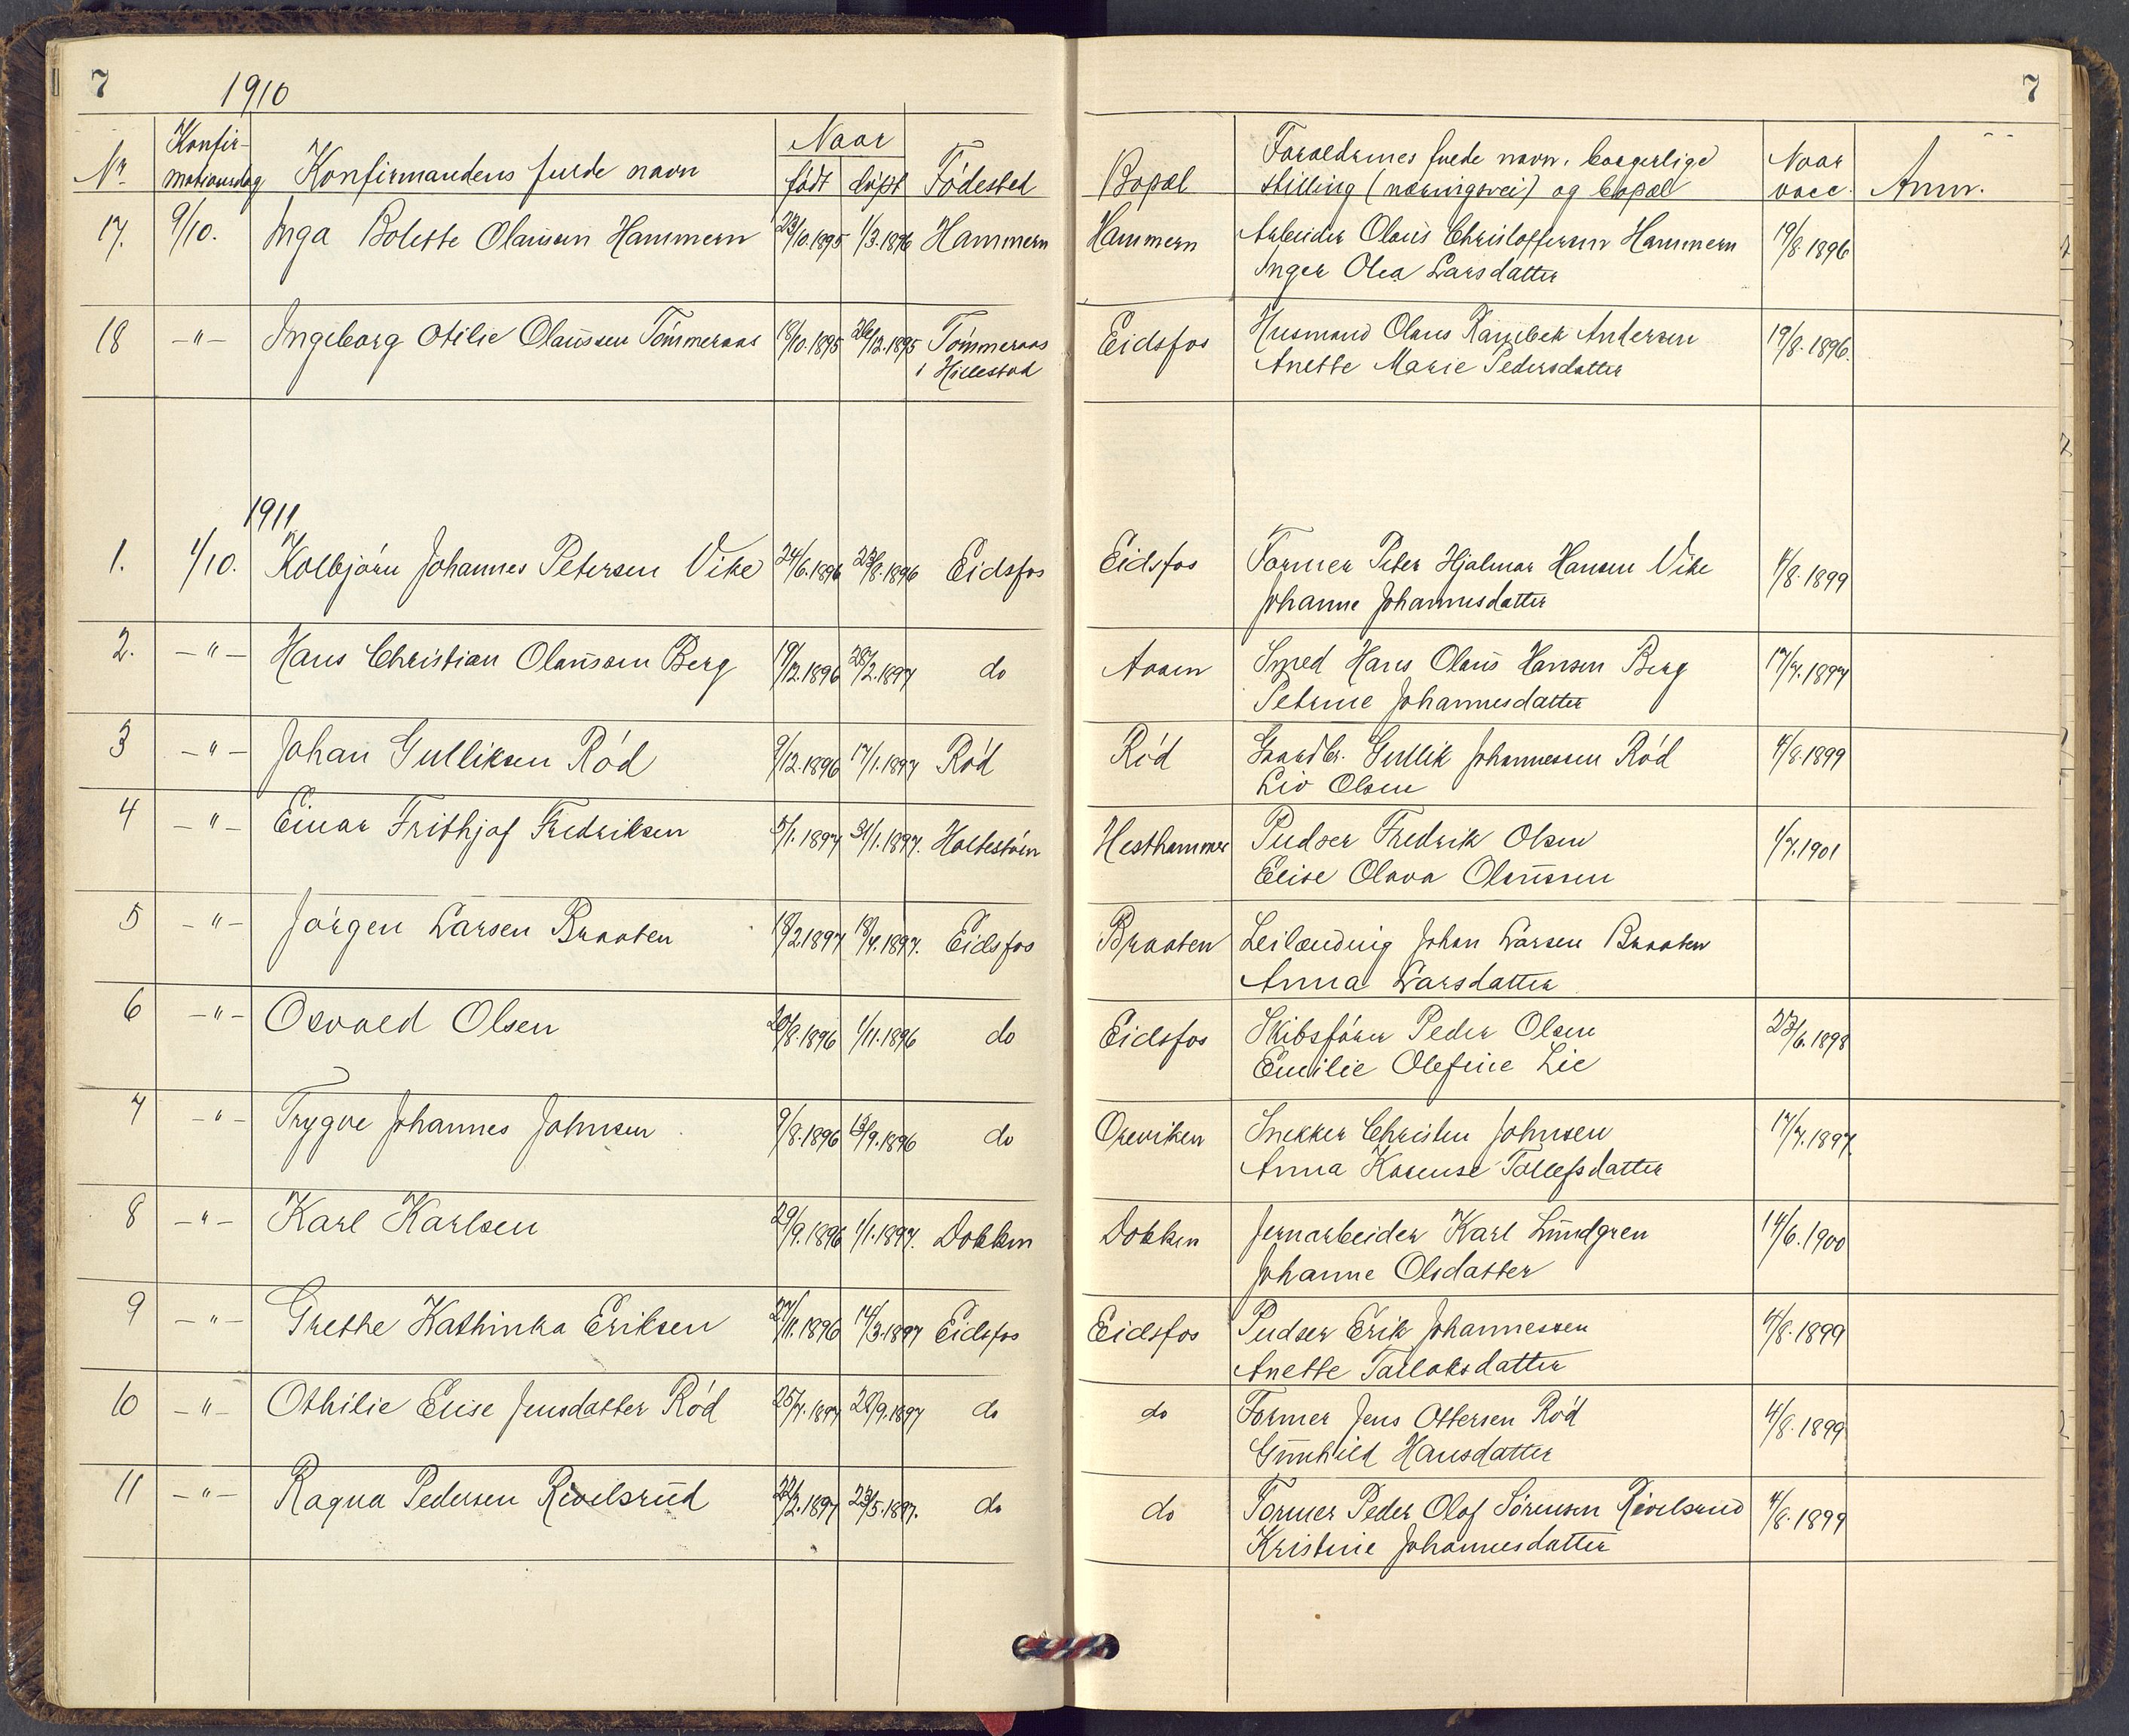 7
1910
7
Nr.
Konfir-
mationsdag
Konfirmandens fulde navn
Naar
født
døpt
Fødested
Bopæl
Foraeldrenes fulde navn, borgerlige
stilling (næringsvei) og bopæl
Naar
vacc.
Anm.
17. 9/10. Inga Bolette Olaussen Hammern 23/10.1895 1/3.1896 Hammern Hammern Arbeider Olaus Christoffersen Hammern 19/8.1896
Inger Olea Larsdatter
18 -"- Ingeborg Otilie Olaussen Tømmeraas 18/10.1895 26/12.1895 Tømmeraas Eidsfos Husmand Olaus Andersen 19/8.1896.
i Hillestad Anette Marie Pedersdatter
1911
1. 1/10. Kolbjørn Johannes Petersen Vike 24/6.1896 23/8.1896 Eidsfos Eidsfos Former Peter Hjalmar Hansen Vike 4/8.1899
Johanne Johannesdatter
2. -"- Hans Christian Olaussen Berg 19/12.1896 28/2.1897 do Aasen Smed Hans Olaus Hansen Berg 17/7.1897
Petrine Johannesdatter
3 -"- Johan Gulliksen Rød 9/12.1896 17/1.1897 Rød Rød Gaardbr. Gullik Johannessen Rød 4/8.1899
Liv Olsen
4 -"- Einar Frithjof Fredriksen 5/1.1897 31/1.1897. Holtestøen Hesthammer Pudser Fredrik Olsen 1/7.1901
Elise Olava Olaussen
5 -"- Jørgen Larsen Braaten 18/2.1897 18/4.1897. Eidsfos Braaten Leilænding Johan Larsen Braaten
Anna Larsdatter
6 -"- Osvald Olsen 20/8.1896 1/11.1896 do Eidsfos Skibsfører Peder Olsen 23/6.1898
Emilie Olefine Lie
7 -"- Trygve Johannes Johnsen 9/8.1896 13/9.1896 do Oreviken Snekker Christen Johnsen 17/7.1897
Anna Karense Tollefsdatter
8 -"- Karl Karlsen 29/9.1896 1/1.1897. Dokken Dokken Jernarbeider Karl Lundgren 14/6.1900
Johanne Olsdatter
9 -"- Grethe Kathinka Eriksen 27/11.1896 14/3.1897 Eidsfos Eidsfos Pudser Erik Johannessen 4/8.1899
Anette Tallaksdatter
10 -"- Othilie Elise Jensdatter Rød 25/7.1897 28/9.1897 do do Former Jens Ottersen Rød 4/8.1899
Gunhild Hansdatter
11 -"- Ragna Pedersen Rivelsrud 22/2.1897 23/5.1897. do do Former Peder Olof Sørensen Rivelsrud 4/8.1899
Kristine Johannesdatter